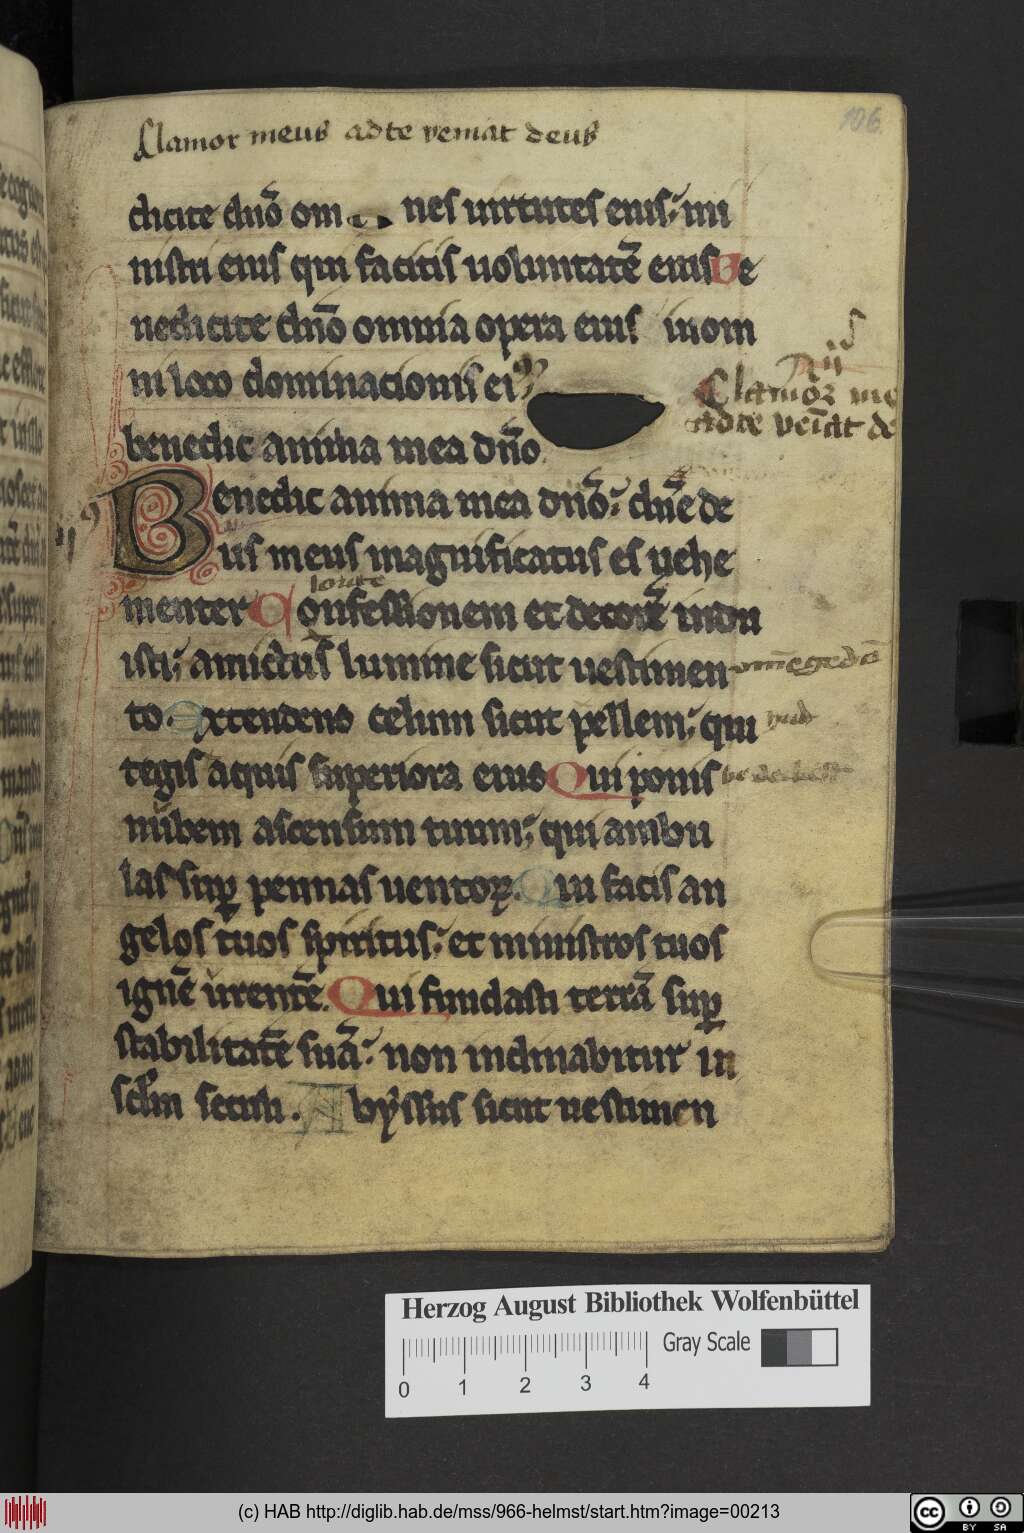 Clamor meus ad te veniat deus
106
dicite dnō om nes uirtutes eius; mi
nistri eius qui facitis uoluntatē eius Be
nedicite dnō omnia opera eius in om
ni loco dominacionis ei9
Clamor me
ad te veīat de
benedic anima mea dn̄o
Benedic anima mea dnō; dn̄e de
us meus magnificatus es uehe
menter Confessionem et decorē indu
isti; amictus lumine sicut uestimen
to. Extendens celum sicut pellem; qui
tegis aquis superiora eius Qui ponis
nubem ascensum tuum; qui ambu
las sup pennas uentoꝝ. Qui facis an
gelos tuos spiritus; et ministros tuos
ignē urentē. Qui fundasti terrā sup
stabilitatē suā; non inclinabitur in
sclm seculi. Abyssus sicut uestimen
Herzog August Bibliothek Wolfenbüttel
Gray Scale
0 1 2 3 4
(c) HAB http://diglib.hab.de/mss/966-helmst/start.htm?image=00213
cc BY SA